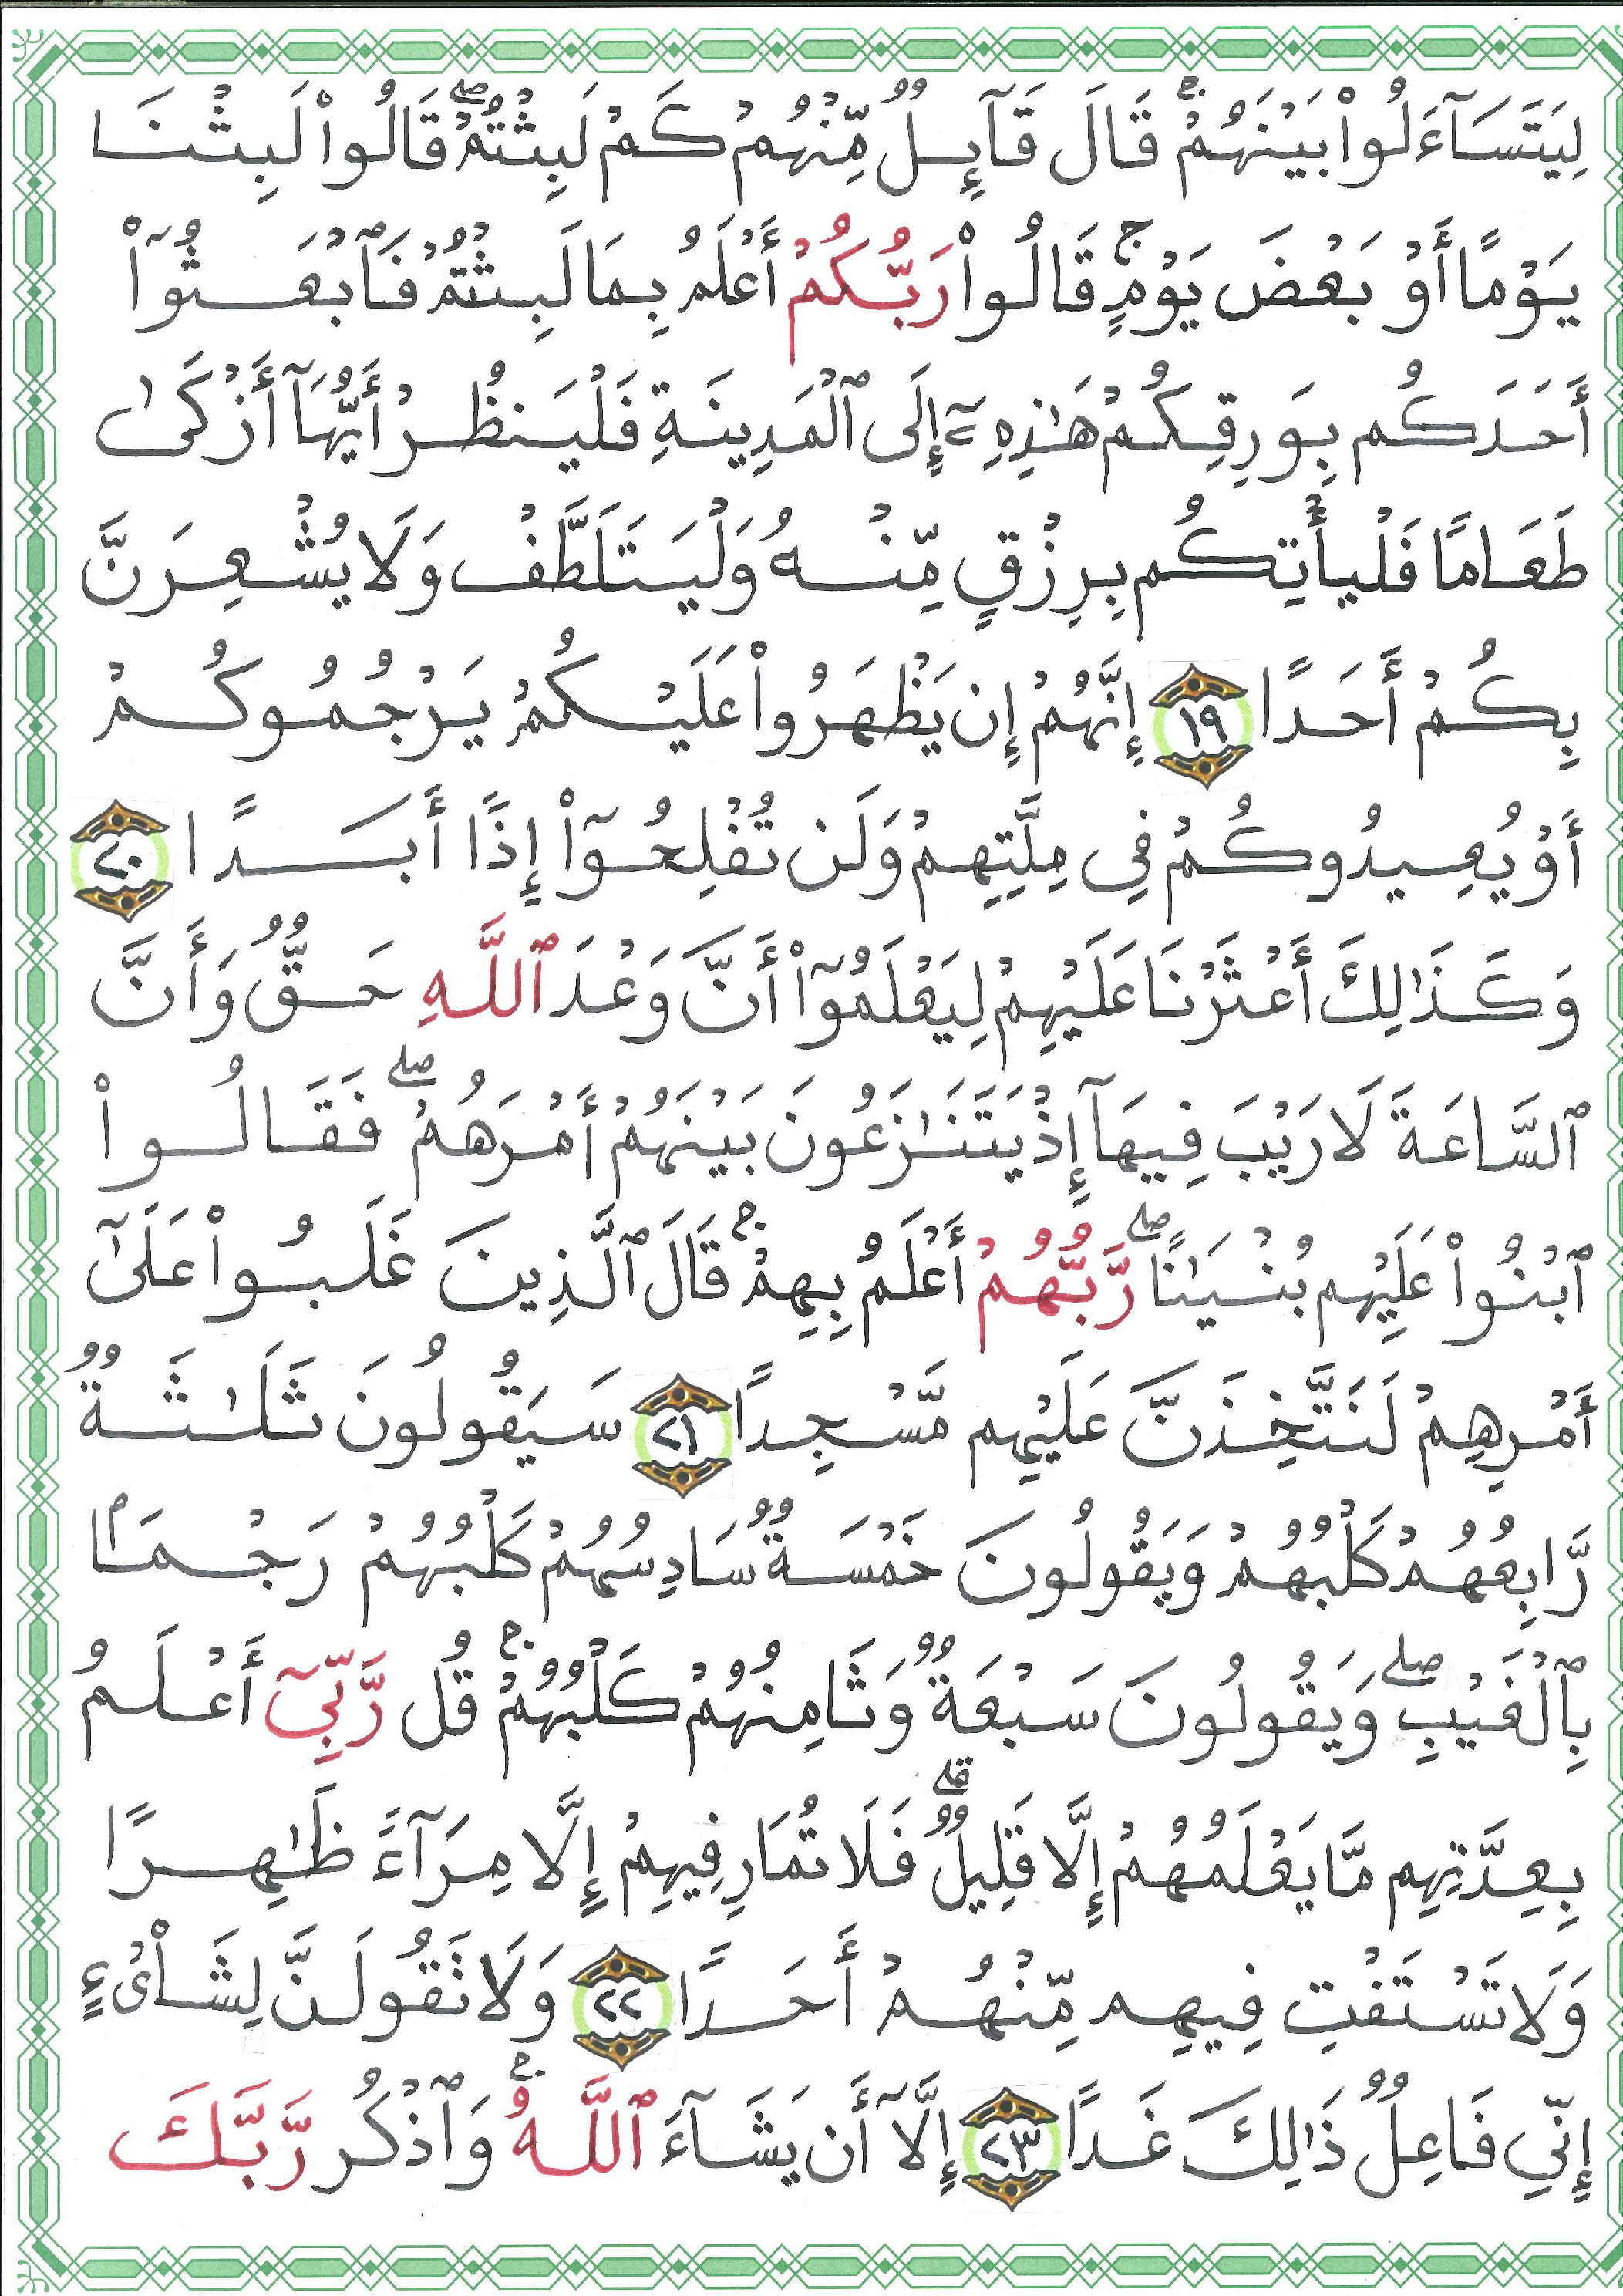 لِيَتَسَآءَلُواْ بَيْنَهُمْۚ قَالَ قَآئِلٌ مِّنْهُمْ كَمْ لَبِثْتُمْۖ قَالُواْ لَبِثْنَا
يَوْمًا أَوْ بَعْضَ يَوْمٍۚ قَالُواْ رَبُّكُمْ أَعْلَمُ بِمَا لَبِثْتُمْ فَٱبْعَثُوٓاْ
أَحَدَكُم بِوَرِقِكُمْ هَٰذِهِۦٓ إِلَى ٱلْمَدِينَةِ فَلْيَنظُرْ أَيُّهَآ أَزْكَىٰ
طَعَامًا فَلْيَأْتِكُم بِرِزْقٍ مِّنْهُ وَلْيَتَلَطَّفْ وَلَا يُشْعِرَنَّ
بِكُمْ أَحَدًا ١٩ إِنَّهُمْ إِن يَظْهَرُواْ عَلَيْكُمْ يَرْجُمُوكُمْ
أَوْ يُعِيدُوكُمْ فِى مِلَّتِهِمْ وَلَن تُفْلِحُوٓاْ إِذًا أَبَدًا ٢٠
وَكَذَٰلِكَ أَعْثَرْنَا عَلَيْهِمْ لِيَعْلَمُوٓاْ أَنَّ وَعْدَ ٱللَّهِ حَقٌّ وَأَنَّ
ٱلسَّاعَةَ لَا رَيْبَ فِيهَآ إِذْ يَتَنَٰزَعُونَ بَيْنَهُمْ أَمْرَهُمْۖ فَقَالُواْ
ٱبْنُواْ عَلَيْهِم بُنْيَٰنًاۖ رَّبُّهُمْ أَعْلَمُ بِهِمْۚ قَالَ ٱلَّذِينَ غَلَبُواْ عَلَىٰٓ
أَمْرِهِمْ لَنَتَّخِذَنَّ عَلَيْهِم مَّسْجِدًا ٢١ سَيَقُولُونَ ثَلَٰثَةٌ
رَّابِعُهُمْ كَلْبُهُمْ وَيَقُولُونَ خَمْسَةٌ سَادِسُهُمْ كَلْبُهُمْ رَجْمًۢا
بِٱلْغَيْبِۖ وَيَقُولُونَ سَبْعَةٌ وَثَامِنُهُمْ كَلْبُهُمْۚ قُل رَّبِّىٓ أَعْلَمُ
بِعِدَّتِهِم مَّا يَعْلَمُهُمْ إِلَّا قَلِيلٌۗ فَلَا تُمَارِ فِيهِمْ إِلَّا مِرَآءً ظَٰهِرًا
وَلَا تَسْتَفْتِ فِيهِم مِّنْهُمْ أَحَدًا ٢٢ وَلَا تَقُولَنَّ لِشَاْىْءٍ
إِنِّى فَاعِلٌ ذَٰلِكَ غَدًا ٢٣ إِلَّآ أَن يَشَآءَ ٱللَّهُۚ وَٱذْكُر رَّبَّكَ